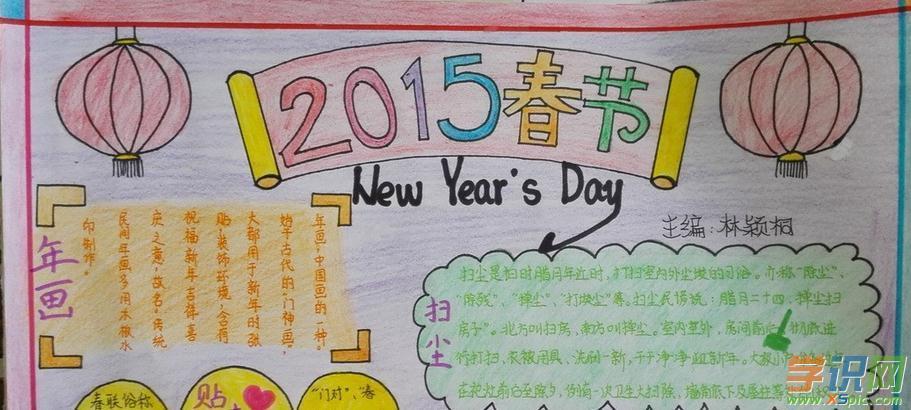 2015春节
New Year's Day
主编:林颖桐
年画
年画,中国画的一种。
始于古代的“门神画”,
大都用于新年时张
贴,装饰环境,含有
祝福新年吉祥喜
庆之意,故名。传统
民间年画多用木板水
印制作。
扫尘
扫尘是扫时腊月年近时,打扫室内外尘垢的习俗。亦称“除尘”、
“除残”、“掸尘”、“打埃尘”等。扫尘民谚说:腊月二十四,掸尘扫
房子”。北方叫扫房,南方叫掸尘。室内室外,房间前后,彻底进
行打扫,衣被用具,洗刷一新,干干净净迎新年。大
在祀灶前后至除夕,
春联俗称
贴
“门对”、春
学识网
www.xspic.com